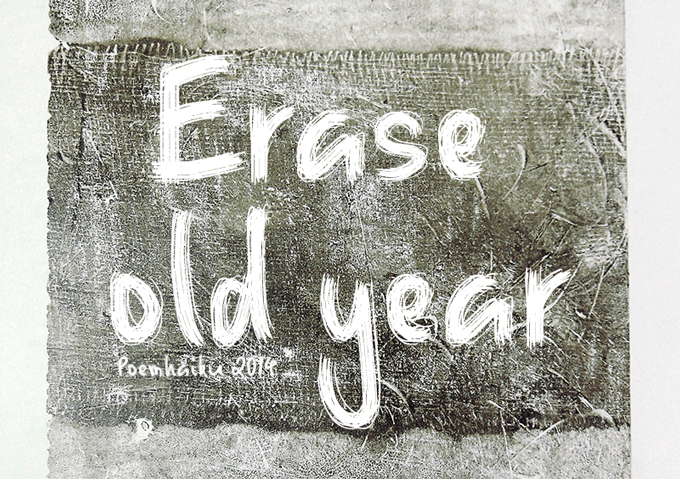 Erase
old year
"Poemhaiku 2014"